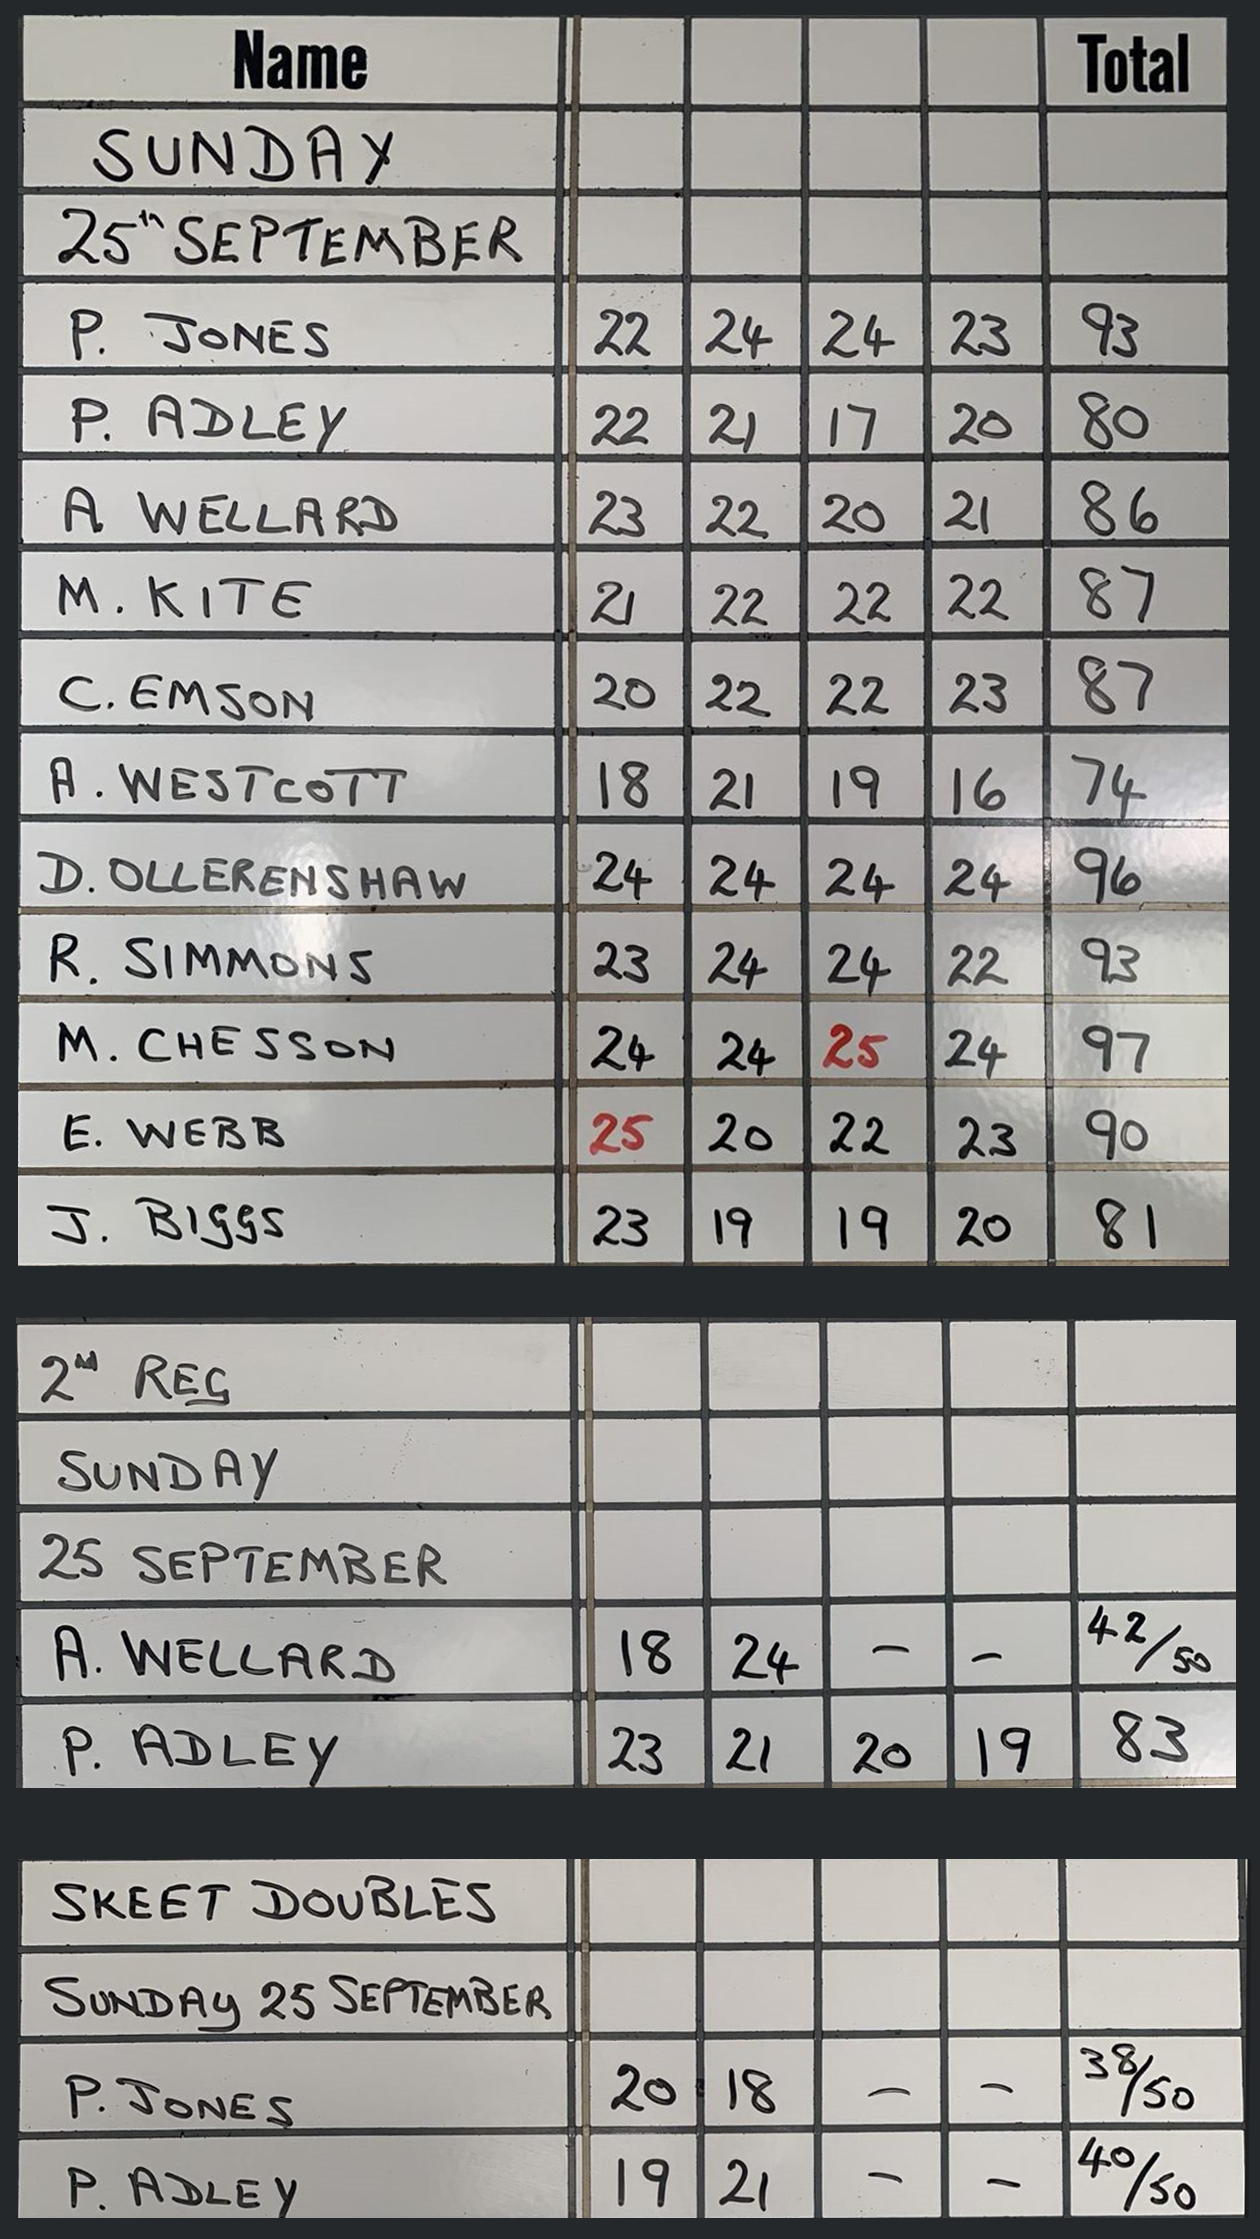 Name Total
SUNDAY
25th SEPTEMBER
P. JONES 22 24 24 23 93
P. ADLEY 22 21 17 20 80
A WELLARD 23 22 20 21 86
M. KITE 21 22 22 22 87
C. EMSON 20 22 22 23 87
A. WESTCOTT 18 21 19 16 74
D. OLLERENSHAW 24 24 24 24 96
R. SIMMONS 23 24 24 22 93
M. CHESSON 24 24 25 24 97
E. WEBB 25 20 22 23 90
J. BIGGS 23 19 19 20 81
2nd REG
SUNDAY
25 SEPTEMBER
A. WELLARD 18 24 - - 42/50
P. ADLEY 23 21 20 19 83
SKEET DOUBLES
SUNDAY 25 SEPTEMBER
P. JONES 20 18 - - 38/50
P. ADLEY 19 21 - - 40/50